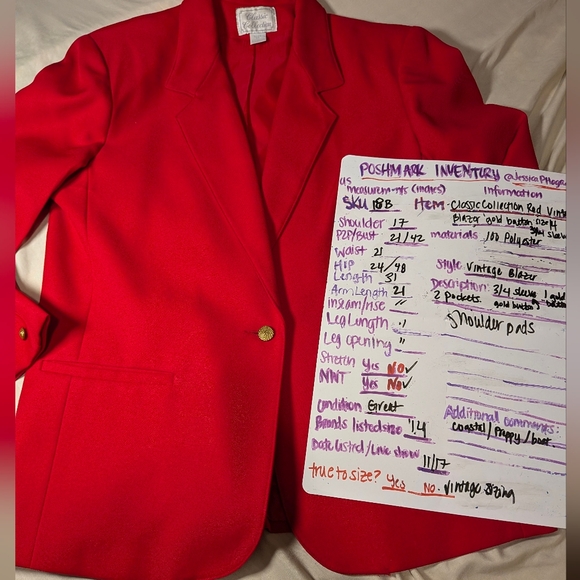 Classic
Collection
POSHMARK INVENTORY
US measurements (inches)
Information
SKU 18B
Item - Classic Collection Red Vinta
Blazer gold button size 14
3/4 sleeve
Shoulder 17
P2P/Bust 21/42
materials 100 Polyester
Waist 21
Hip 24/48
Style Vintage Blazer
Length 31
Arm Length 21
Description: 3/4 sleeve 1 gold
2 pockets gold button
Inseam/rise "
Shoulder pads
Leg Length "
Leg opening "
Stretch Yes NO ✓
NWT Yes No ✓
Condition Great
Brands listed size 14
Additional comments:
coastal / Preppy / boat
Date listed/Live show 11/17
True to size? Yes No. vintage sizing